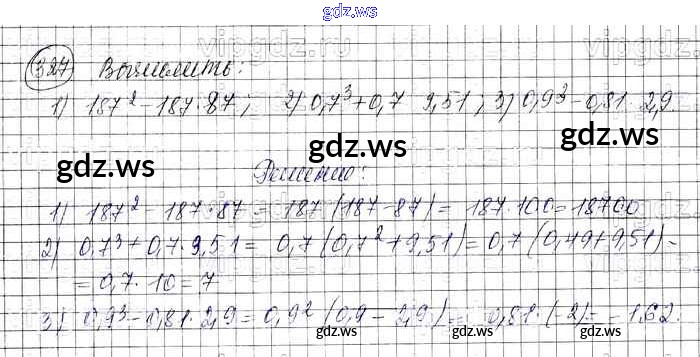 gdz.ws
vipgdz.ru
327 Вычислить:
1) 187² - 187·87; 2) 0,7³ + 0,7 9,51; 3) 0,9³ - 0,81 2,9.
gdz.ws gdz.ws
Решение:
1) 187² - 187·87 = 187(187-87) = 187·100 = 18700
2) 0,7³ + 0,7·9,51 = 0,7(0,7² + 9,51) = 0,7(0,49+9,51) -
= 0,7·10 = 7
gdz.ws gdz.ws
3) 0,9³ - 0,81·2,9 = 0,9²(0,9 - 2,9) = 0,81·(-2) = -1,62.
gdz.ws gdz.ws